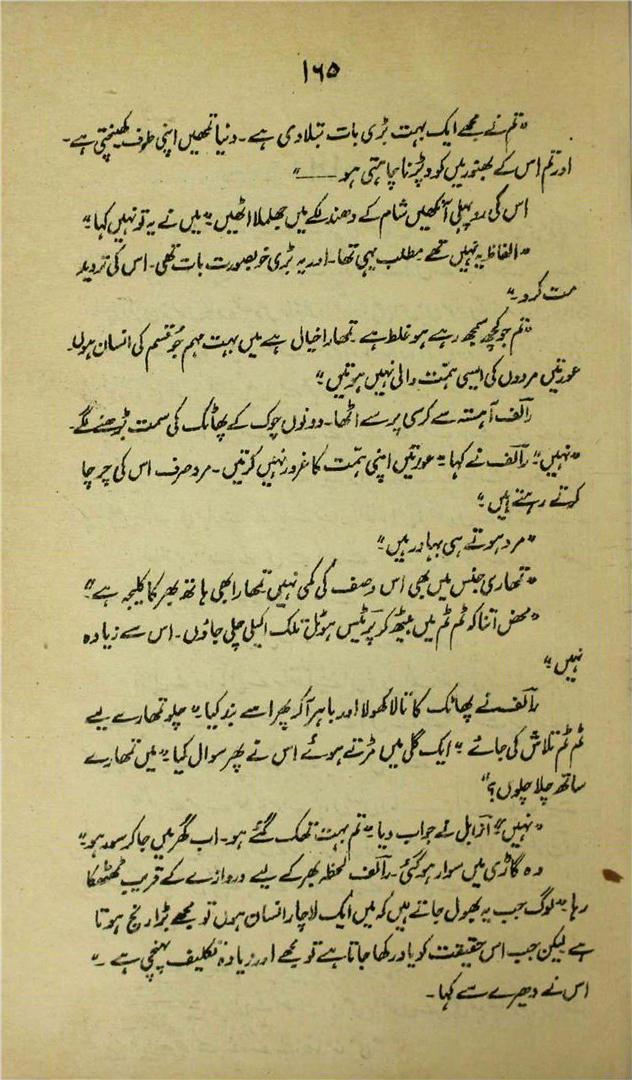 ۱۶۵
”تم نے مجھے ایک بہت بڑی بات بتلا دی ہے۔ دنیا تمھیں اپنی طرف کھینچتی ہے۔
اور تم اس کے بھنور میں کود پڑنا چاہتی ہو ——“
اس کی روپہلی آنکھیں شام کے دھندلکے میں جھلملا اٹھیں ”میں نے یہ تو نہیں کہا“
”الفاظ یہ نہیں تھے مطلب یہی تھا۔ اور یہ بڑی خوبصورت بات تھی۔ اس کی تردید
مت کرو۔“
”تم جو کچھ سمجھ رہے ہو غلط ہے۔ تمھارا خیال ہے میں بہت مہم جُو قسم کی انسان ہوں۔
عورتیں مردوں کی ایسی ہمّت والی نہیں ہوتیں“
رالف آہستہ سے کرسی پر سے اٹھا۔ دونوں چوک کے پھاٹک کی سمت بڑھنے لگے۔
”نہیں“ رالف نے کہا ”عورتیں اپنی ہمّت کا غرور نہیں کرتیں۔ مرد صرف اس کی چرچا
کرتے رہتے ہیں“
”مرد ہوتے ہی بہادر ہیں“
”تمھاری جنس میں بھی اس وصف کی کمی نہیں تمھارا بھی ہاتھ بھر کا کلیجہ ہے“
”محض اتنا کہ ٹم ٹم میں بیٹھ کر پرٹیس ہوٹل تلک اکیلی چلی جاؤں۔ اس سے زیادہ
نہیں“
رالف نے پھاٹک کا تالا کھولا اور باہر آ کر پھر اسے بند کیا۔ ”چلو تمھارے لیے
ٹم ٹم تلاش کی جائے“ ایک گلی میں مڑتے ہوئے اس نے پھر سوال کیا ”میں تمھارے
ساتھ چلا چلوں؟“
”نہیں“ ازابل نے جواب دیا ”تم بہت تھک گئے ہو۔ اب گھر میں جا کر سو رہو“
وہ گاڑی میں سوار ہو گئی۔ رالف لحظہ بھر کے لیے دروازے کے قریب ٹھٹھکا
رہا ”لوگ جب یہ بھول جاتے ہیں کہ میں ایک لاچار انسان ہوں تو مجھے بڑا رنج ہوتا
ہے لیکن جب اس حقیقت کو یاد رکھا جاتا ہے تو مجھے اور زیادہ تکلیف پہنچی ہے۔“
اس نے دھیرے سے کہا۔